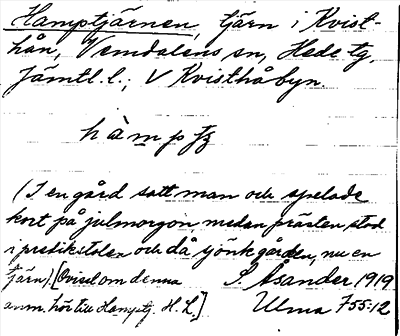 Hamptjärnen, tjärn i Kvist-
hån, Vemdalens sn, Hede tg,
Jämtl. l.; V Kvisthåbyn.
hàmptj
(I en gård satt man och spelade
kort på julmorgon medan prästen stod
i predikstolen och då sjönk gården, nu en
tjärn). [Ovisst om denna S. Åsander 1919
anm. hör till Hamptj. H. L.] Ulma 755:12